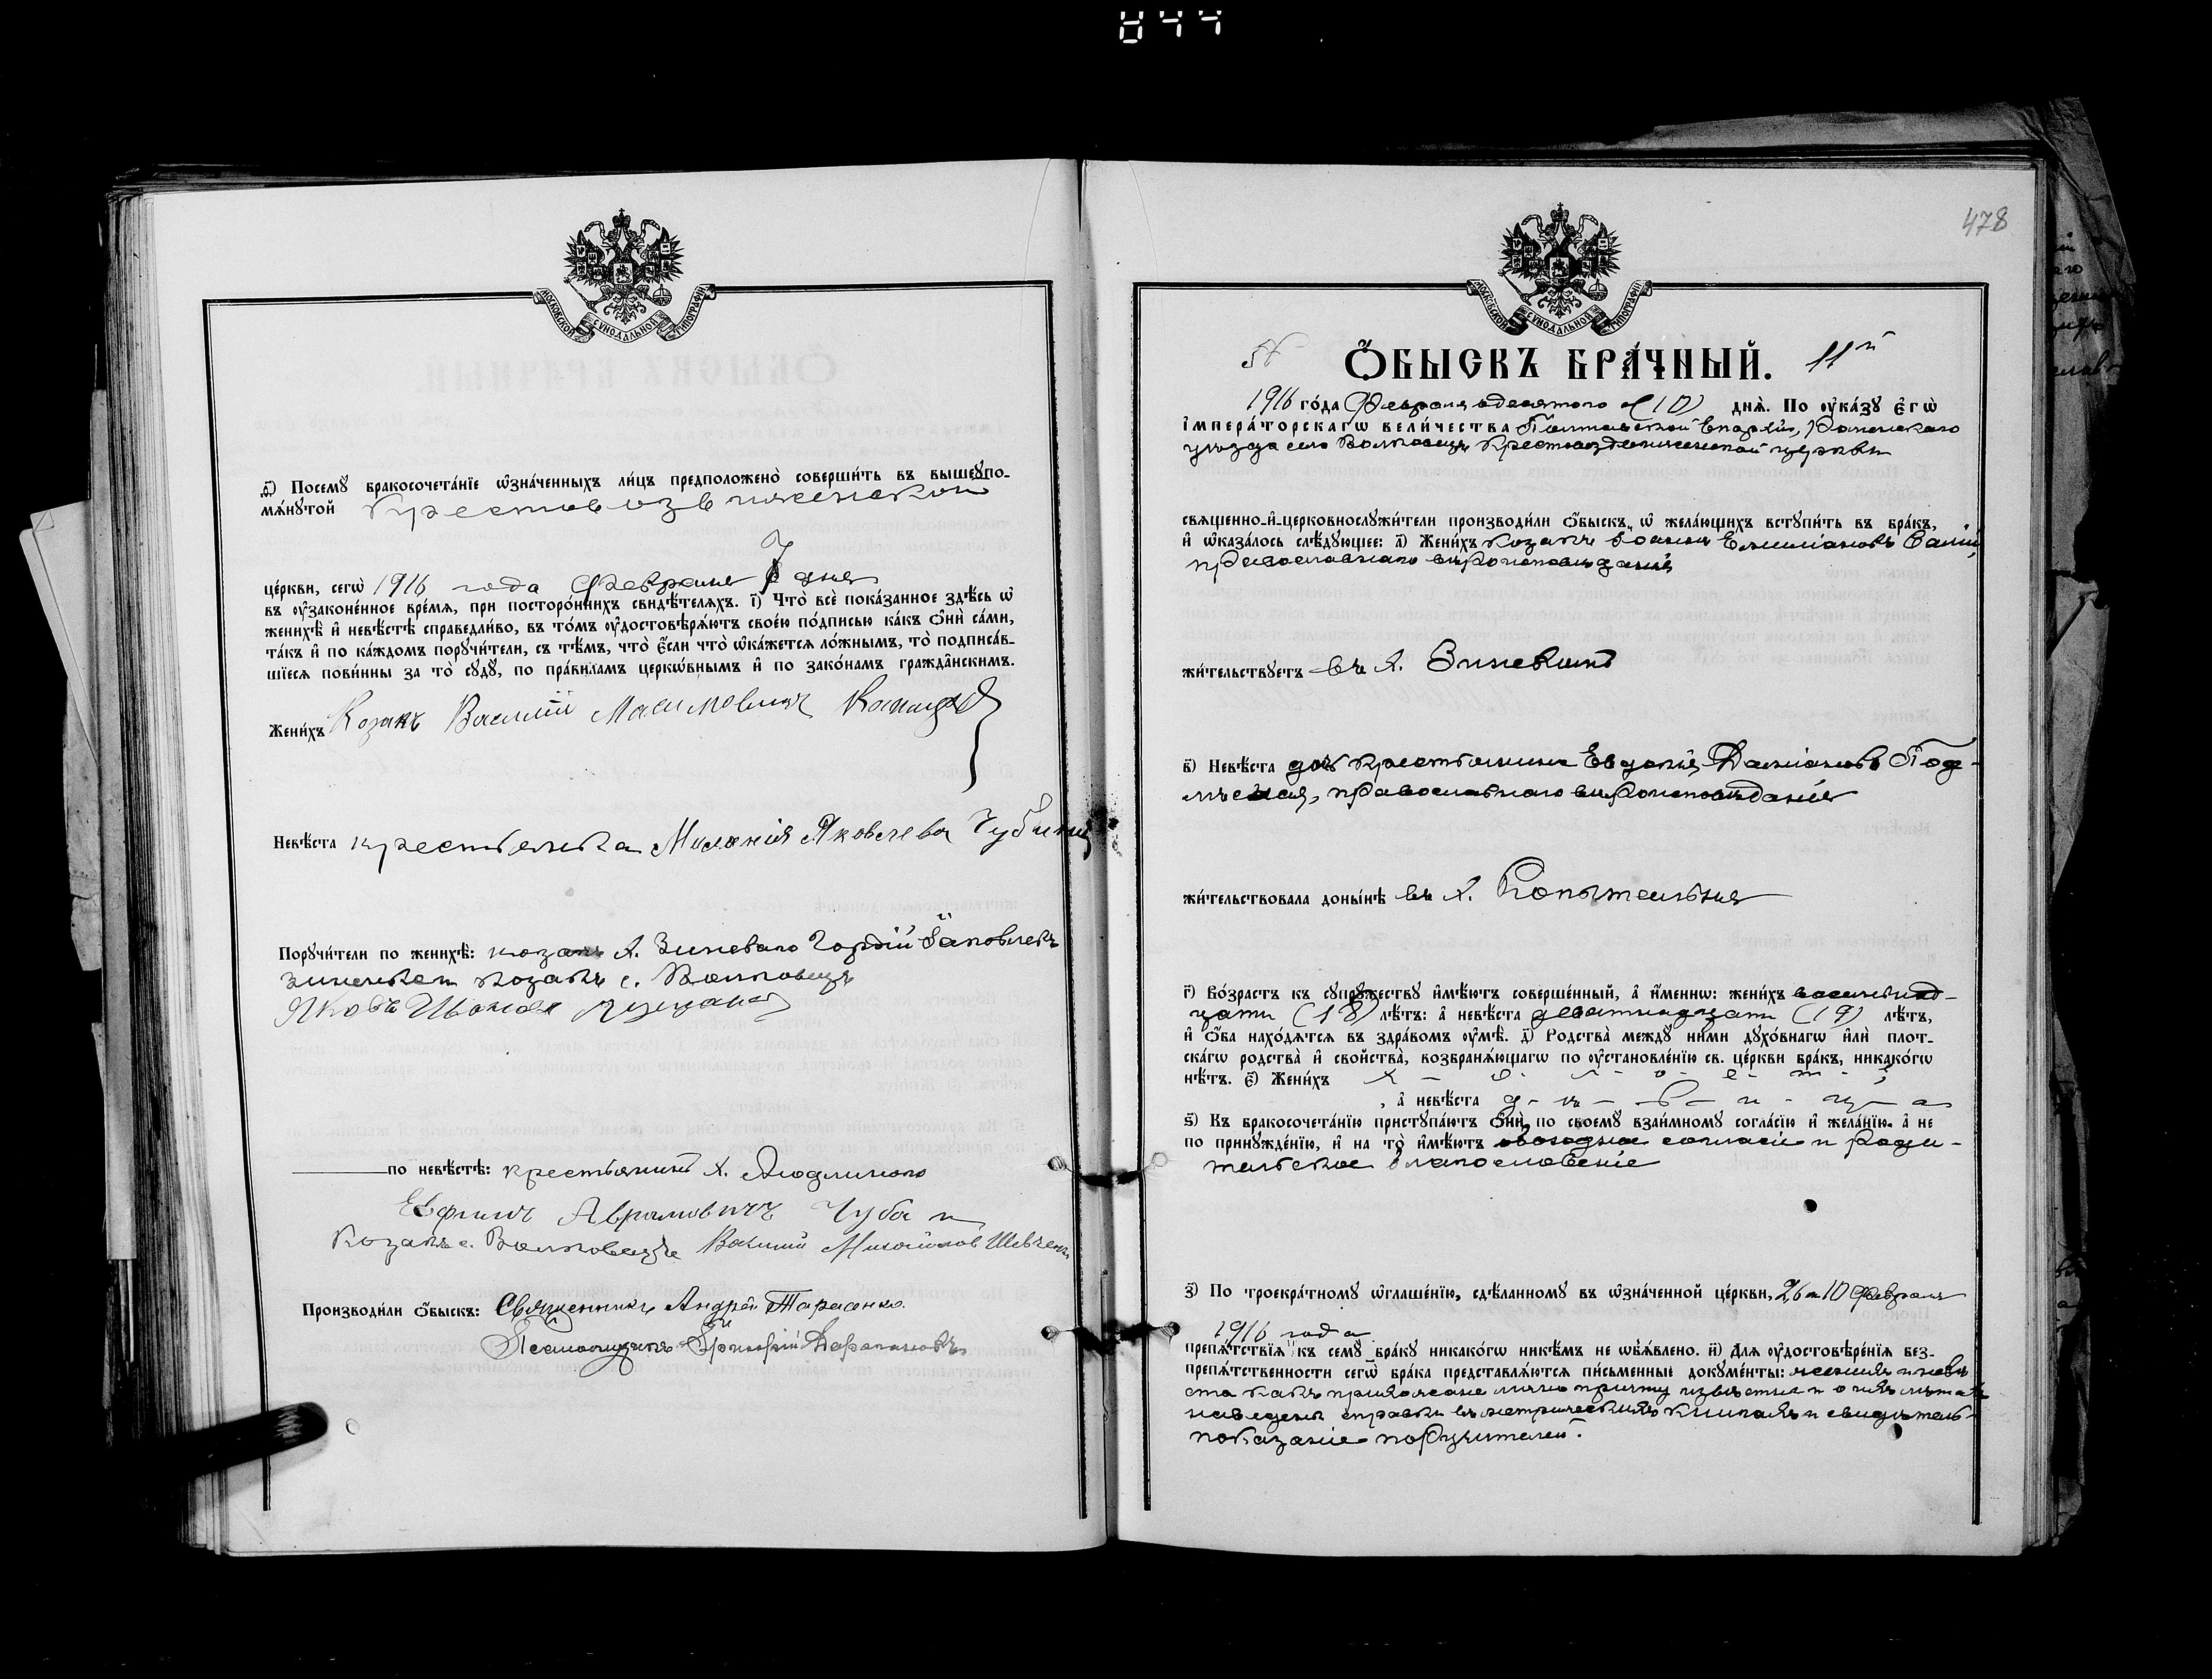 844
МОСКОВСКОЙ СѴНОДАЛЬНОЙ ТИПОГРАФІИ
ѳ҃) Посемꙋ̀ бракосочета́нїе ѡ҆зна́ченныхъ ли́цъ предположено̀ соверши́ть въ вышеꙋпо-
мѧ́нꙋтой Крестовоздвиженской
це́ркви, сегѡ̀ 1916 года Февраля 7 дня
въ ᲂу҆законе́нное вре́мѧ, при посторо́ннихъ свидѣ́телѧхъ. і҃) Что̀ всѐ пока́занное здѣ́сь ѡ҆
женихѣ̀ и҆ невѣ́стѣ справедли́во, въ то́мъ ᲂу҆достовѣрѧ́ютъ свое́ю по́дписью ка́къ ѻ҆нѝ са́ми,
та́къ и҆ по ка́ждомъ порꙋчи́тели, съ тѣ́мъ, что̀ є҆́сли что̀ ѡ҆ка́жетсѧ ло́жнымъ, то̀ подписа́в-
шїесѧ пови́нны за то̀ сꙋдꙋ̀, по пра́виламъ церкѡ́внымъ и҆ по зако́намъ гражда̑нскимъ.
Жени́хъ Козакъ Василій Масимовичъ
Невѣ́ста крестьянка Меланія Яковлева
Порꙋчи́тели по женихѣ̀: козакъ х. Зиневаго Гордій Іаковлевъ
Зиненко и козакъ с. Волковецъ
Яковъ Иванов
по невѣ́стѣ: крестьянинъ х.
Евфимъ Аврамовичъ Чуба и
Козакъ с. Волковецъ Василий Михайлов Шевченко
Производи́ли ѻ҆́быскъ: Священникъ Андрей Тарасенко
Псаломщикъ Григорій
478
МОСКОВСКОЙ СѴНОДАЛЬНОЙ ТИПОГРАФІИ
№ Ѻ҆́БЫСКЪ БРА́ЧНЫЙ. 11й
1916 го́да Февраля десятого (10) днѧ̀. По ᲂу҆ка́зꙋ є҆гѡ̀
і҆мпера́торскагѡ вели́чества Полтавской Епархіи, Роменскаго
уезда села Волковецъ Крестовоздвиженской церкви
свѧще́нно-и҆-церковнослꙋжи́тели производи́ли ѻ҆́быскъ ѡ҆ жела́ющихъ встꙋпи́ть въ бра́къ,
и҆ ѡ҆каза́лось слѣ́дꙋющее: а҃) Жени́хъ козакъ Іоаннъ Емиліановъ
православнаго вѣроисповѣданія
жи́тельствꙋетъ въ х. Зиневомъ
в҃) Невѣ́ста дочь крестьянина Евдокія Даміанова Под-
православнаго вѣроисповѣданія
жи́тельствовала доны́нѣ въ х.
г҃) Во́зрастъ къ сꙋпрꙋ́жествꙋ и҆мѣ́ютъ соверше́нный, а҆ и҆́меннѡ: жени́хъ восемнад-
цати (18) лѣ́тъ: а҆ невѣ́ста девятнадцати (19) лѣ́тъ,
и҆ ѻ҆́ба нахо́дѧтсѧ въ здра́вомъ ᲂу҆мѣ̀. д҃) Родства̀ междꙋ̀ ни́ми дꙋхо́внагѡ и҆лѝ плот-
ска́гѡ родства̀ и҆ сво́йства, возбранѧ́ющагѡ по ᲂу҆становле́нїю св. це́ркви бра́къ, никако́гѡ
нѣ́тъ. є҃) Жени́хъ х - о - л - о - с - т - ъ
, а҆ невѣ́ста д - ѣ - в - и - ц - а
ѕ҃) Къ бракосочета́нїю пристꙋпа́ютъ ѻ҆нѝ по своемꙋ̀ взаи́мномꙋ согла́сїю и҆ жела́нїю, а҆ не
по принꙋжде́нїю, и҆ на то̀ и҆мѣ́ютъ обоюдное согласіе и роди-
тельское благословеніе
з҃) По троекра́тномꙋ ѡ҆глаше́нїю, сдѣ́ланномꙋ въ ѡ҆зна́ченной це́ркви, 2, 6 и 10 Февраля
1916 года
препѧ́тствїѧ къ семꙋ̀ бра́кꙋ никако́гѡ никѣ́мъ не ѡ҆бъѧ́влено. и҃) Длѧ ᲂу҆достовѣре́нїѧ без-
препѧ́тственности сегѡ̀ бра́ка представлѧ́ютсѧ пи́сьменные докꙋме́нты: женихъ и невѣ-
ста какъ прихожане лично причту извѣстны и о ихъ лѣтахъ
наведены справки въ метрическихъ книгахъ и свидѣтель-
показаніе поручителей.